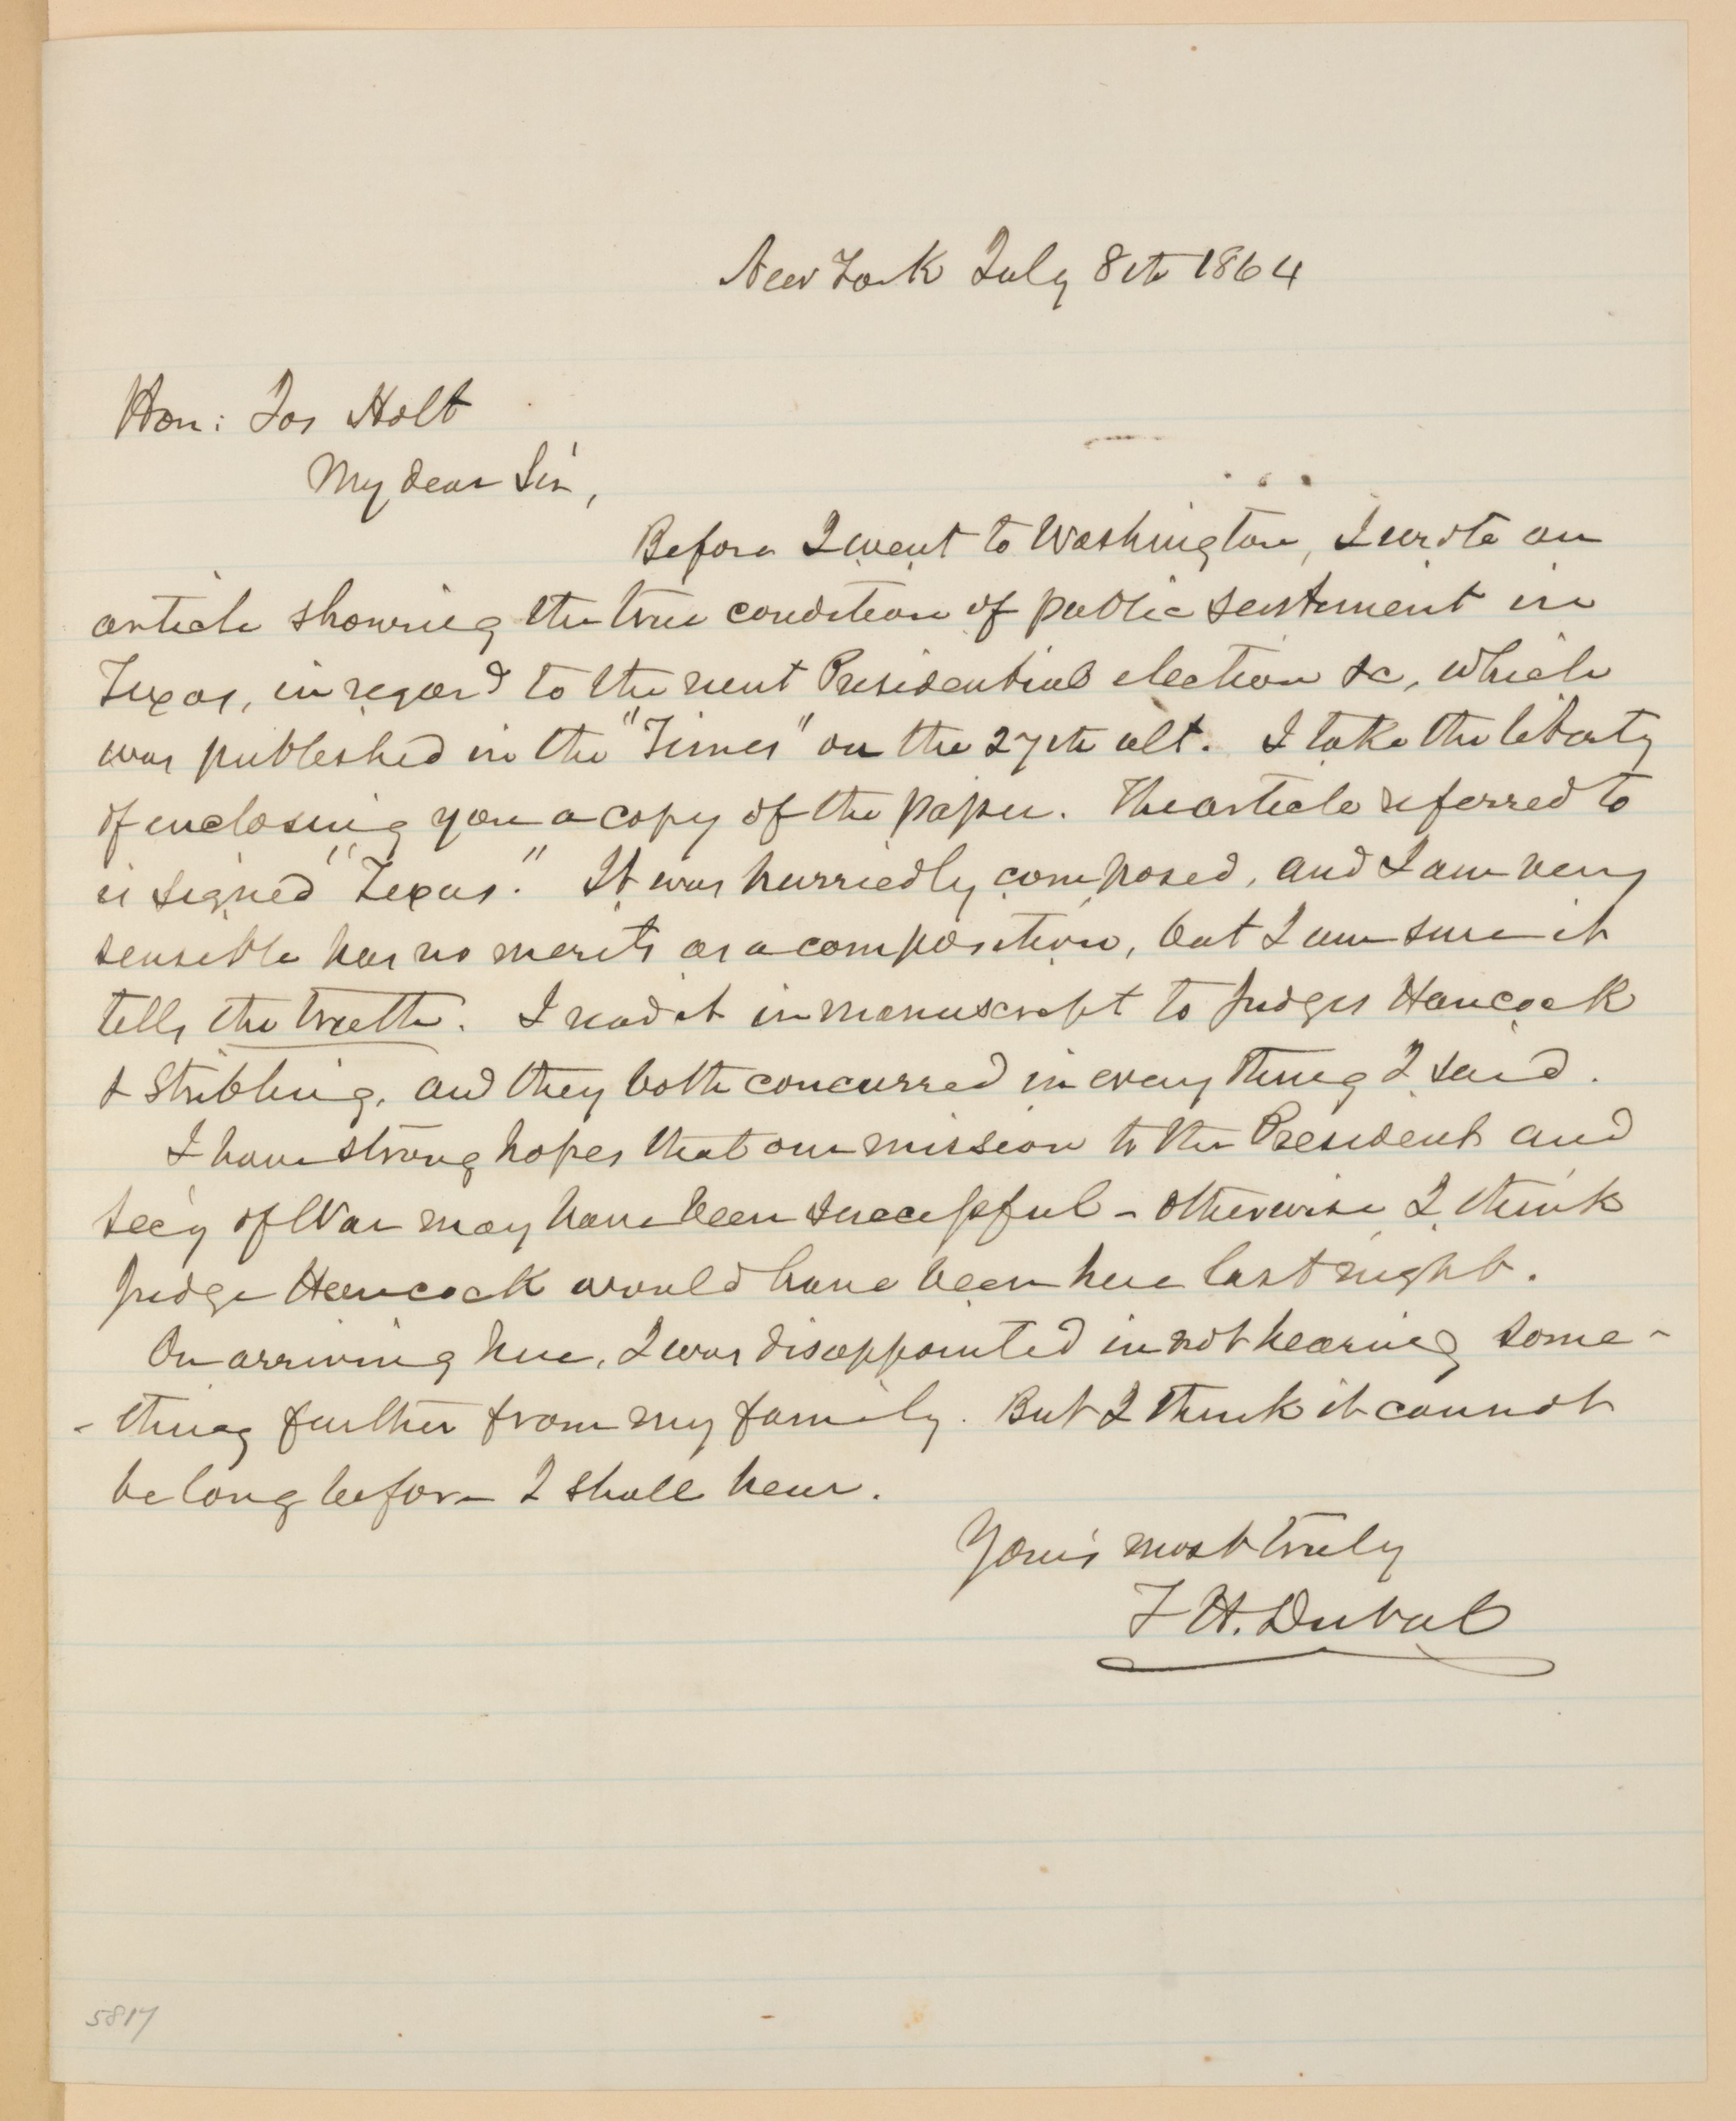 New York July 8th 1864
Hon: Jos Holt
My dear Sir,
Before I went to Washington, I wrote an
article showing the true condition of public sentiment in
Texas, in regard to the next Presidential election &c, which
was published in the "Times" on the 27th ult. I take the liberty
of enclosing you a copy of the paper. The article referred to
is signed "Texas." It was hurriedly composed, and I am very
sensible has no merits as a composition, but I am sure it
tells the truth. I read it in manuscript to Judges Hancock
& Stribling, and they both concurred in every thing I said.
I have strong hopes that our mission to the President and
Sec'y of War may have been successful - otherwise I think
Judge Hancock would have been here last night.
On arriving here, I was disappointed in not hearing some-
-thing further from my family. But I think it cannot
be long before I shall hear.
Your's most truly
T H. Duval
5817